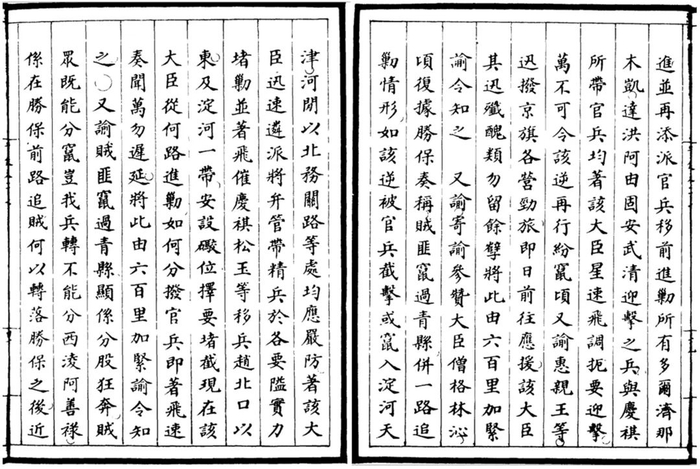 進並再添派官兵移前進勦所有多爾濟那
木凱達洪阿由固安武清迎擊之兵與慶祺
所帶官兵均著該大臣星速飛調扼要迎擊
萬不可令該逆再行紛竄頃又諭惠親王等
迅撥京旗各營勁旅即日前往應援該大臣
其迅殲醜類勿留餘孽將此由六百里加緊
諭令知之 又諭寄諭參贊大臣僧格林沁
頃復據勝保奏稱賊匪竄過青縣併一路追
勦情形如該逆被官兵截擊或竄入淀河天
津河間以北務關路等處均應嚴防著該大
臣迅速遴派將弁管帶精兵於各要隘實力
堵勦並著飛催慶祺松玉等移兵趙北口以
東及淀河一帶安設礮位擇要堵截現在該
大臣從何路進勦如何分撥官兵即著飛速
奏聞萬勿遲延將此由六百里加緊諭令知
之○又諭賊匪竄過青縣顯係分股狂奔賊
眾既能分竄豈我兵轉不能分西淩阿善祿
係在勝保前路追賊何以轉落勝保之後近